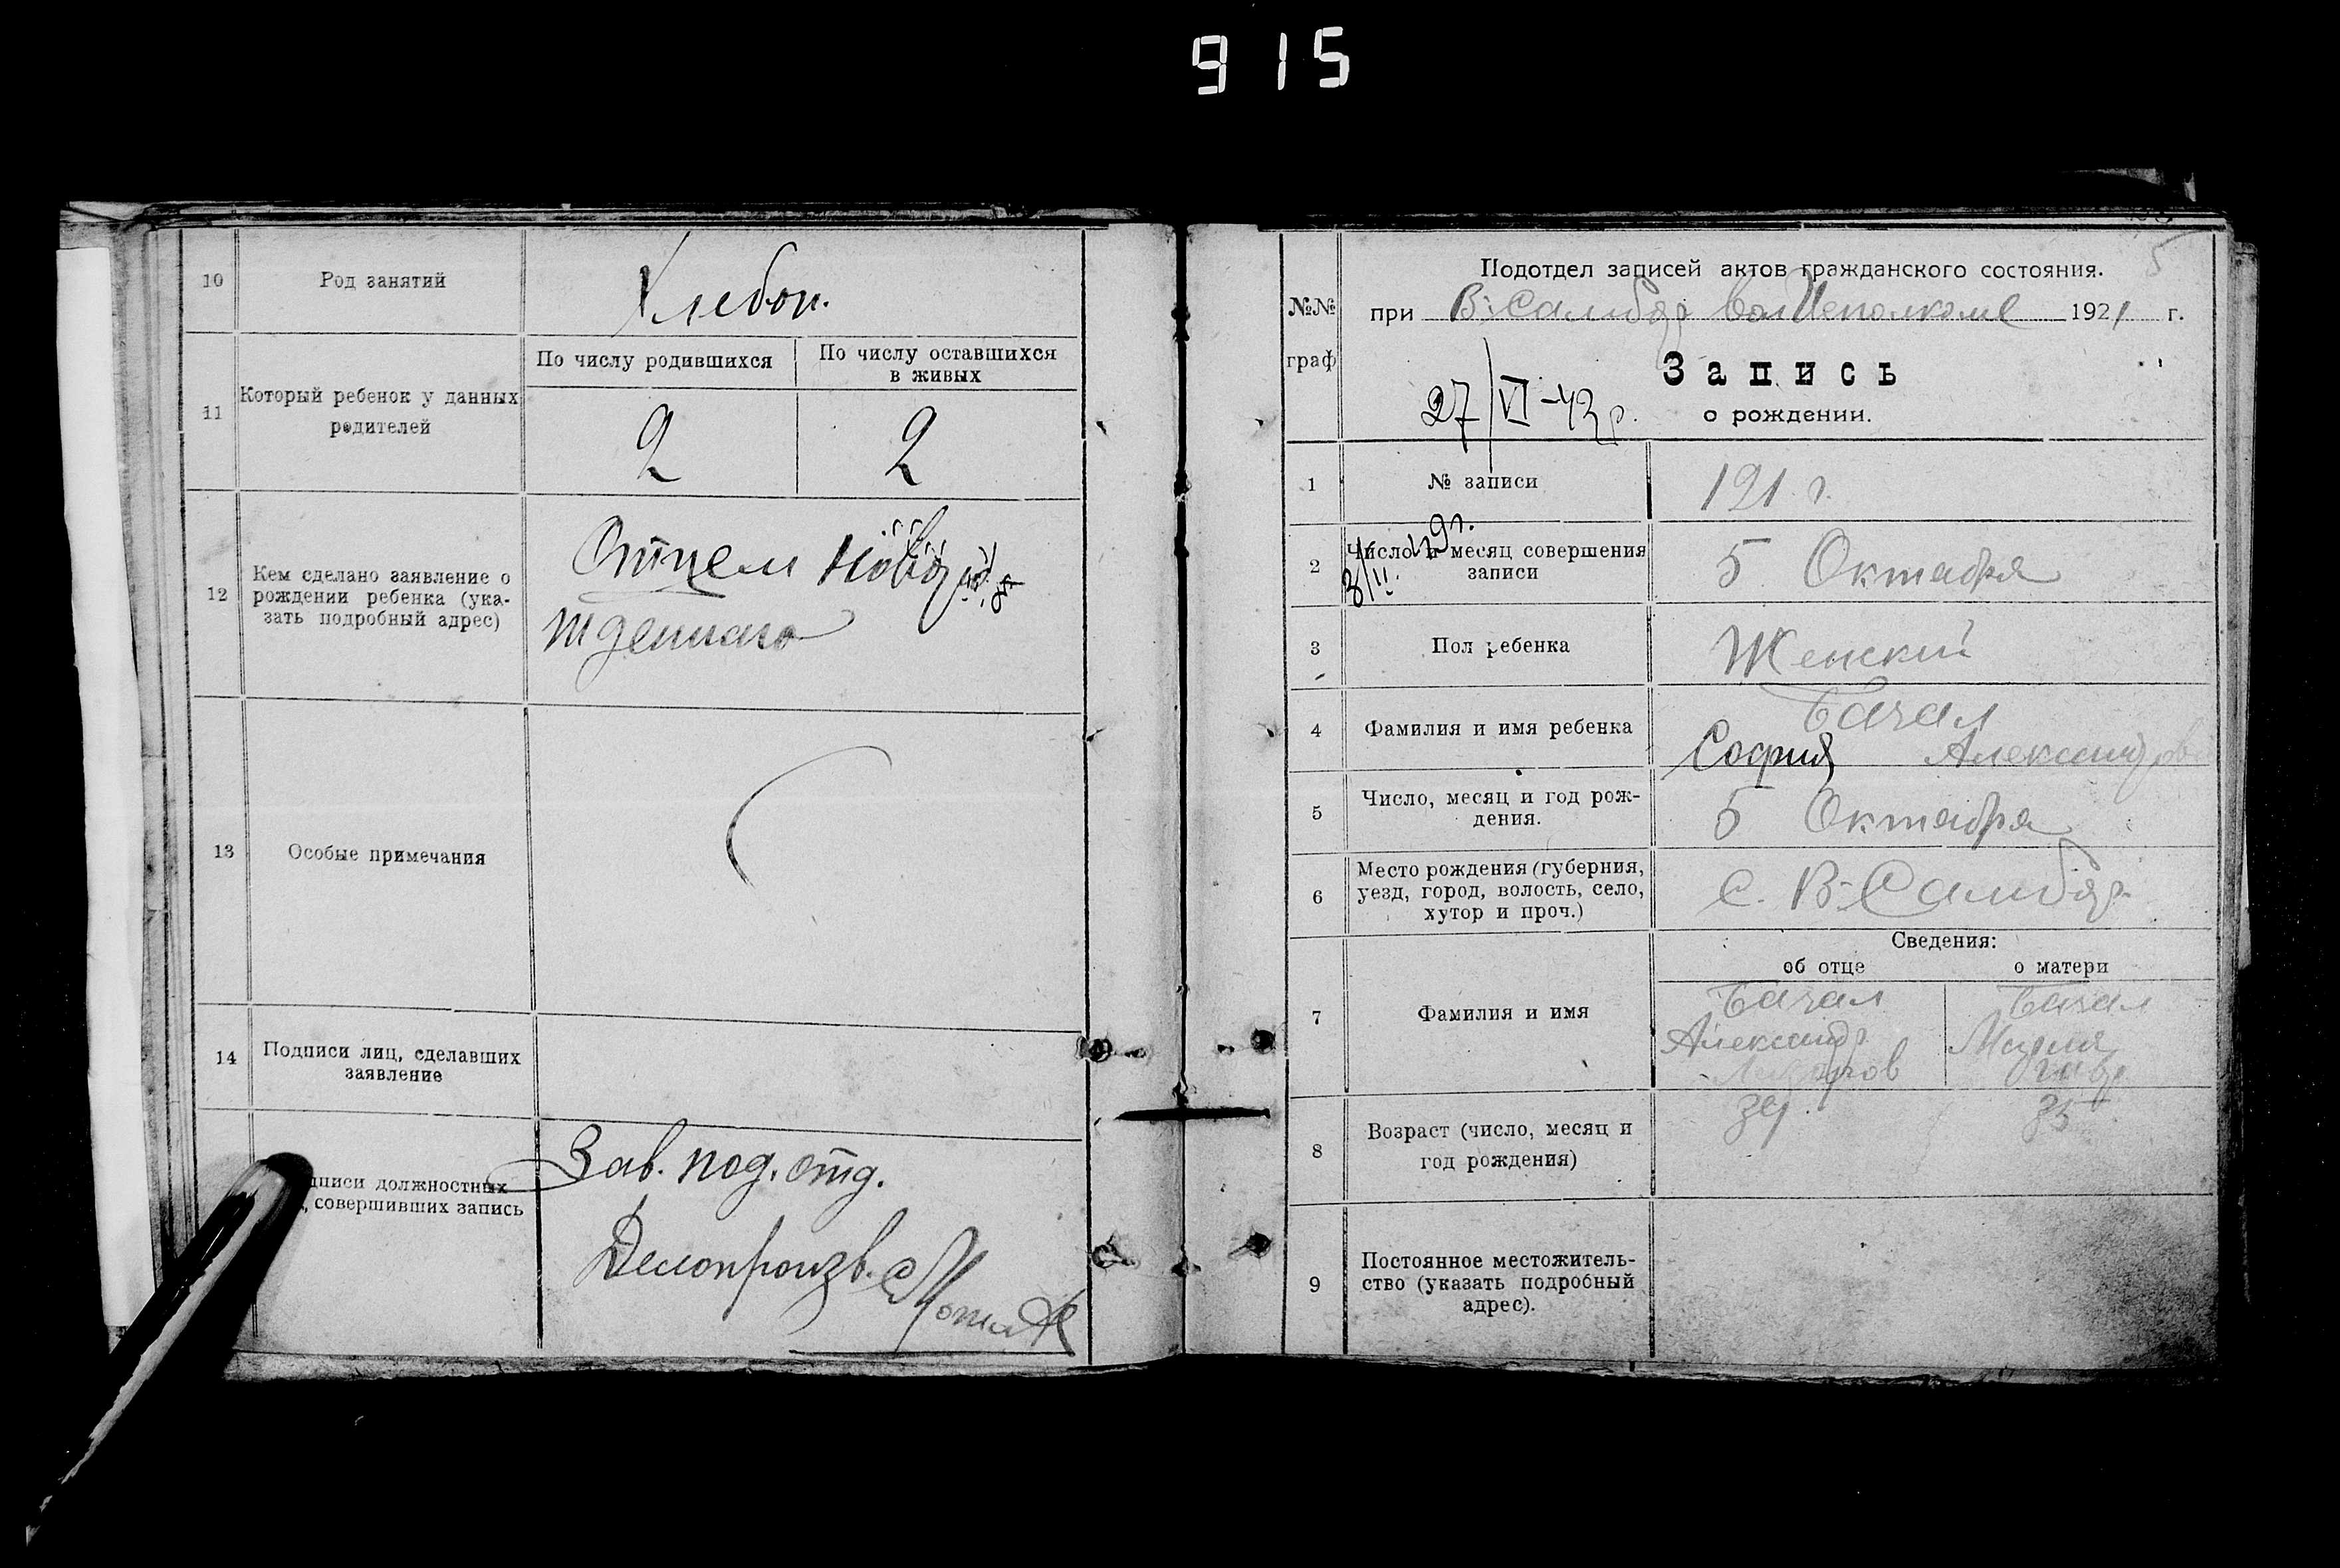 915
10
Род занятий
Хлебоп.
11
Который ребенок у данных
родителей
По числу родившихся
По числу оставшихся
в живых
2
2
12
Кем сделано заявление о
рождении ребенка (ука-
зать подробный адрес)
Отцем новорож
жденнаго
13
Особые примечания
14
Подписи лиц, сделавших
заявление
дписи должностных
, совершивших запись
Зав. под. отд.
Делопроизв.
№№
граф
Подотдел записей актов гражданского состояния.
5
при В-Самбор волИсполкоме 1921 г.
Запись
о рождении.
27/VI-43г.
1
№ записи
191 г.
2
Число и месяц совершения
записи
5 Октября
3
Пол ребенка
Женский
4
Фамилия и имя ребенка
Бачал
София Александров
5
Число, месяц и год рож-
дения.
5 Октября
6
Место рождения (губерния,
уезд, город, волость, село,
хутор и проч.)
С. В-Самбор
Сведения:
об отце
о матери
7
Фамилия и имя
Бачал
Александр
Бачал
Мария
8
Возраст (число, месяц и
год рождения)
35
9
Постоянное местожитель-
ство (указать подробный
адрес).